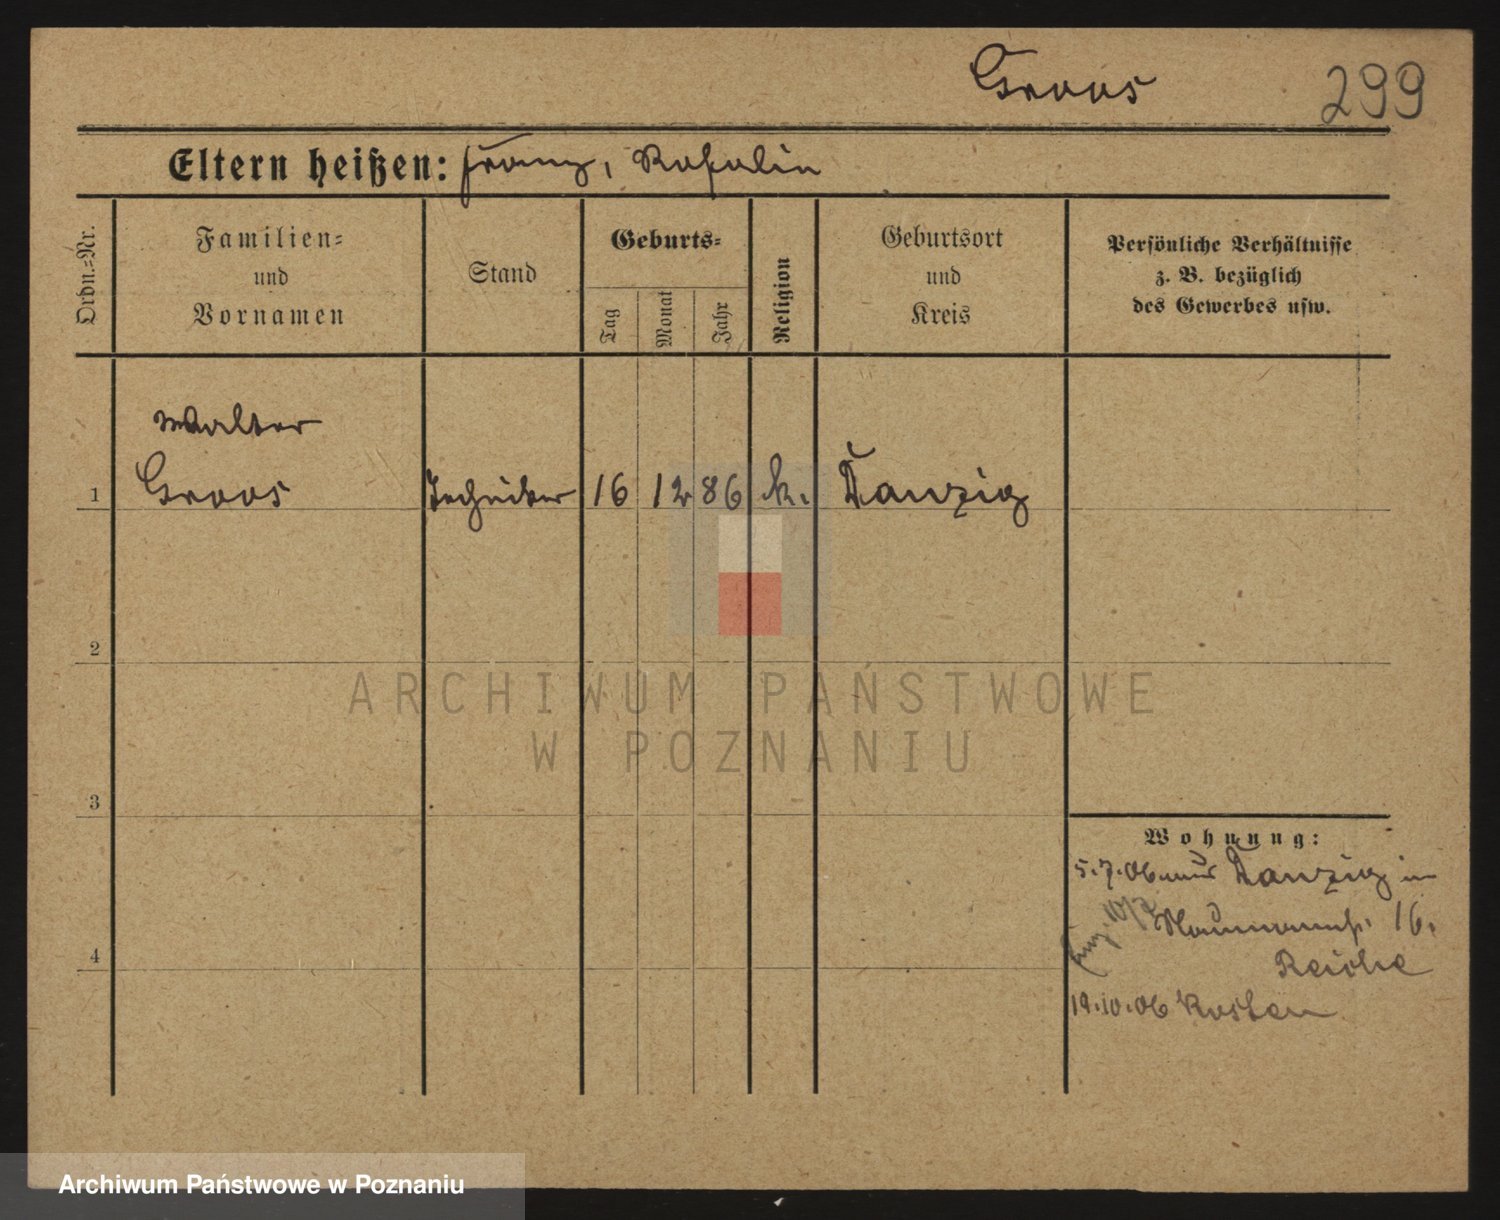 Groos
299
Eltern heißen: Franz, Rosalin
Ordn.=Nr.
Familien=
und
Vornamen
Stand
Geburts=
Tag
Monat
Jahr
Religion
Geburtsort
und
Kreis
Persönliche Verhältnisse
z. B. bezüglich
des Gewerbes usw.
Walter
1 Groos Techniker 16 12 86 k. Danzig
2
3
4
Wohnung:
5.7.06 aus Danzig in
Naumannst. 16.
Reiche
19.10.06 Kosten
ARCHIWUM PAŃSTWOWE
W POZNANIU
Archiwum Państwowe w Poznaniu